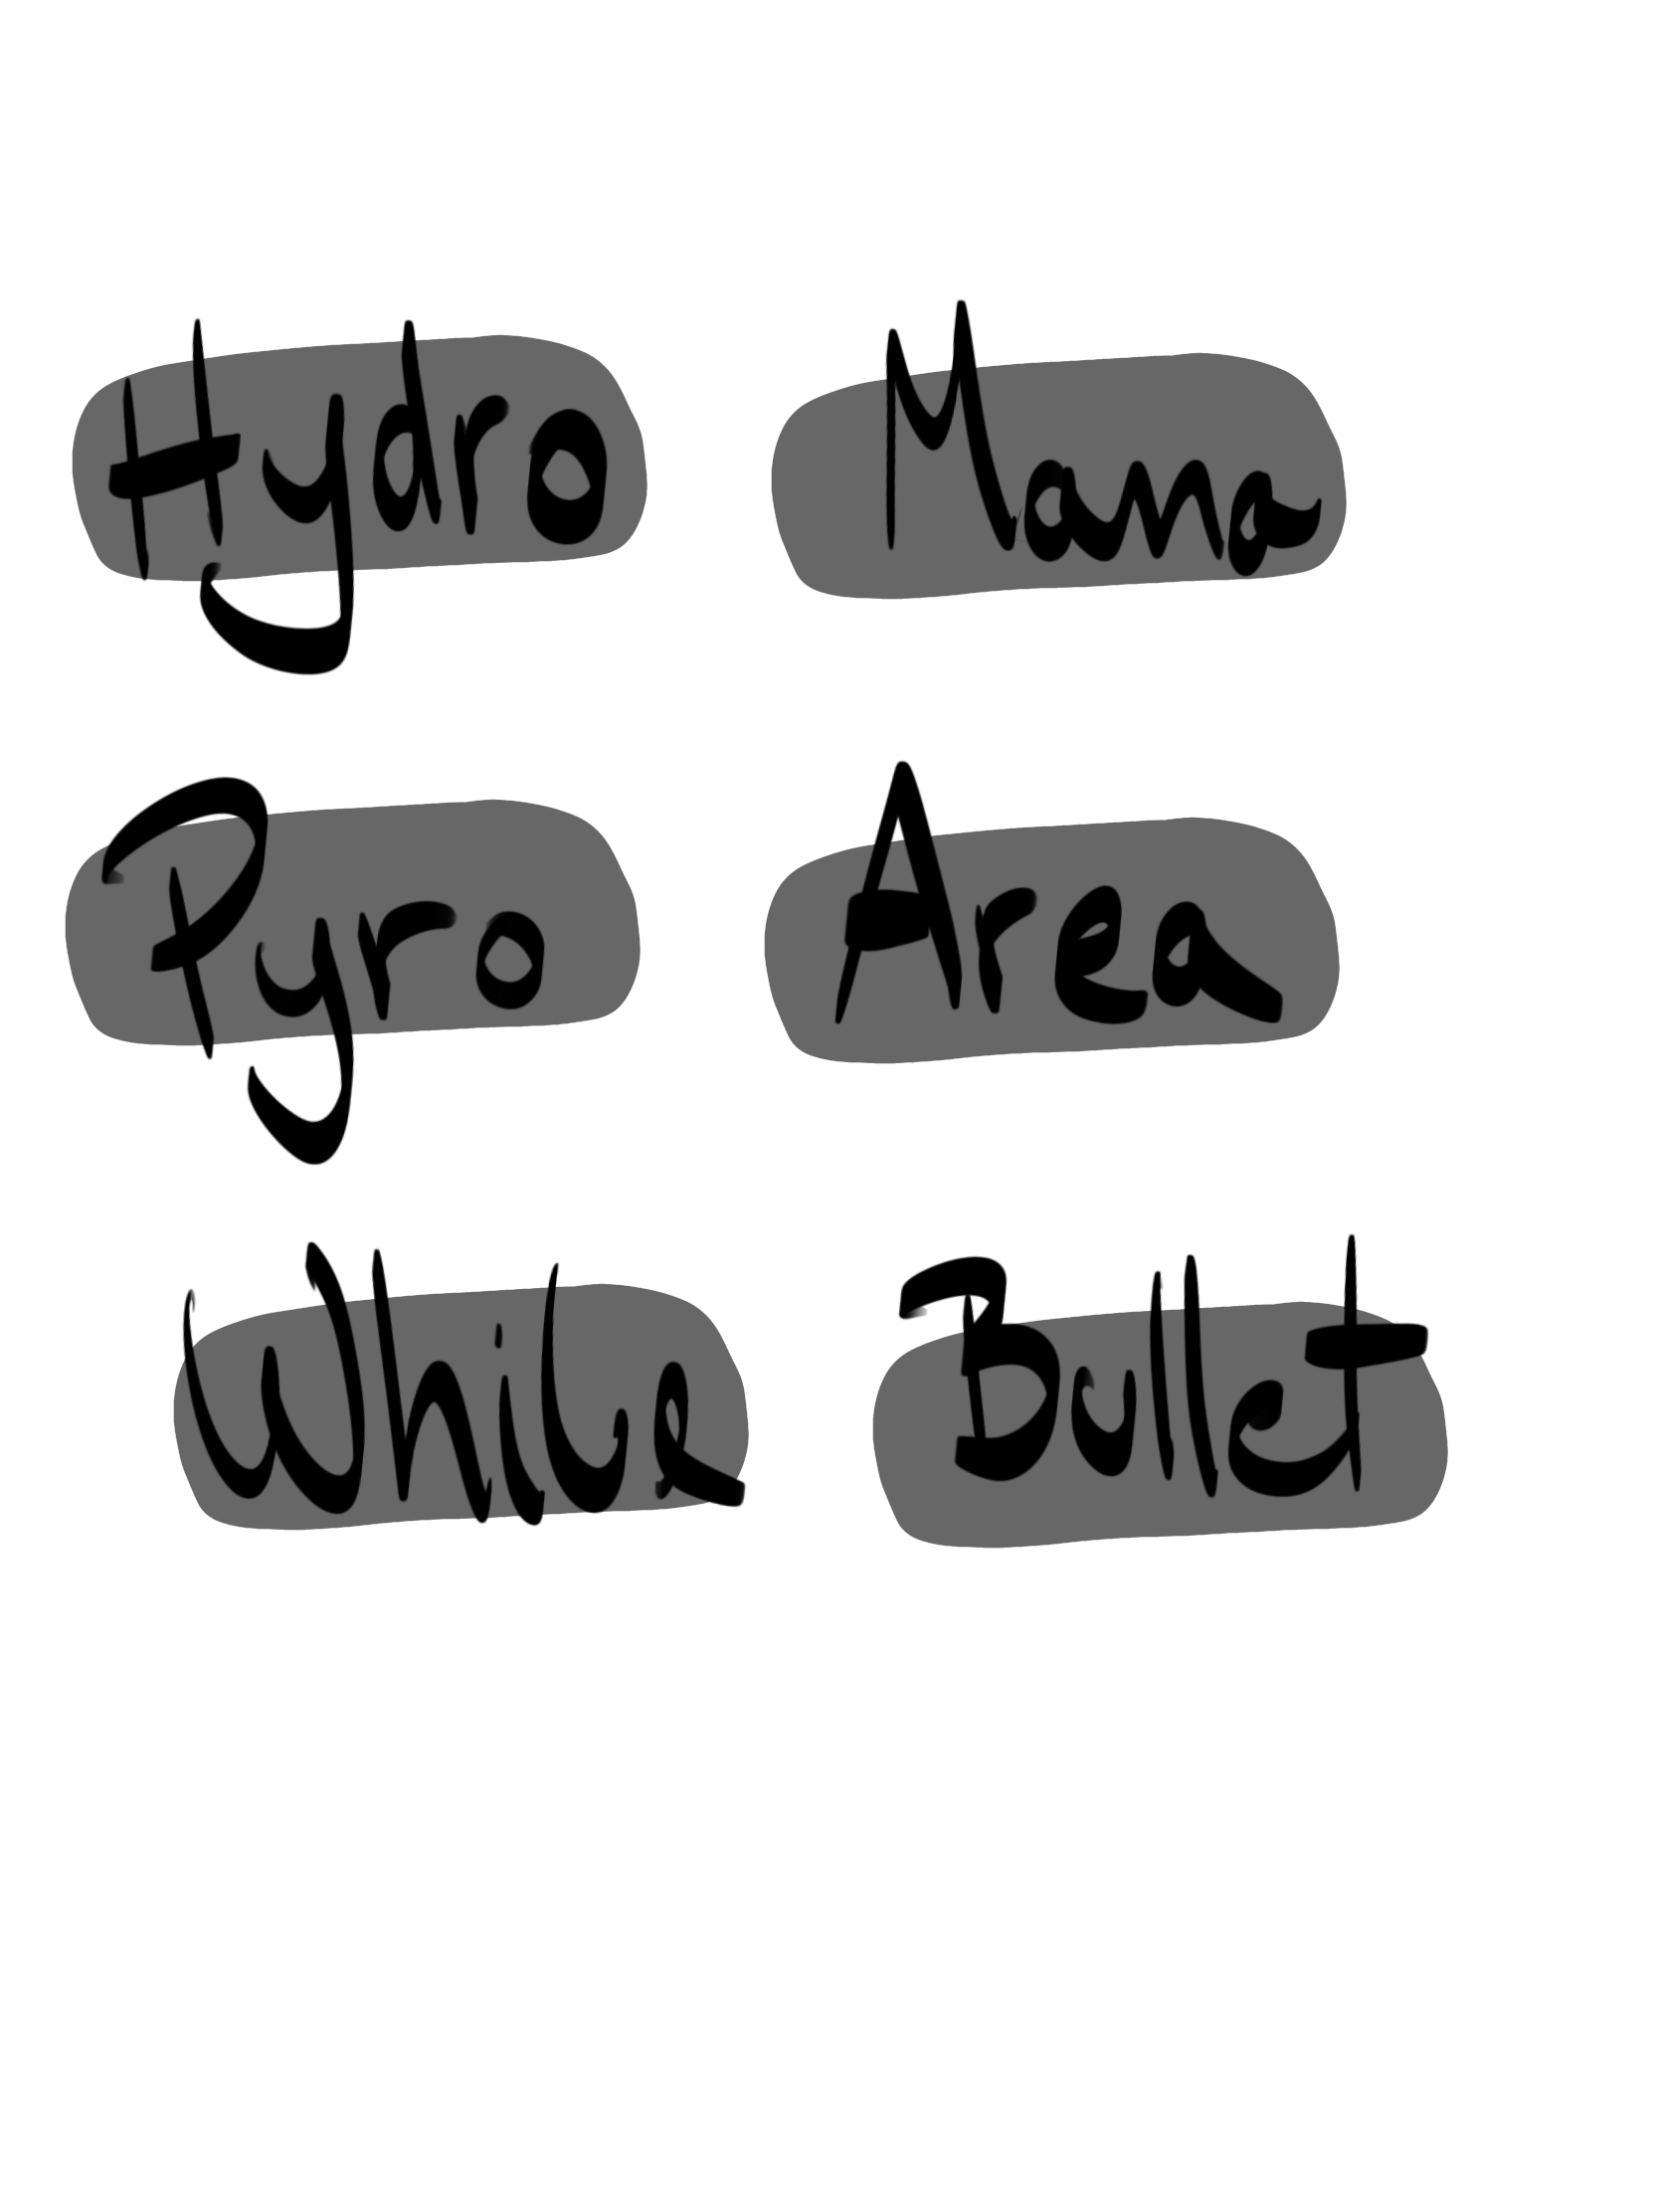 Hydro Mana
Pyro Area
While Bullet